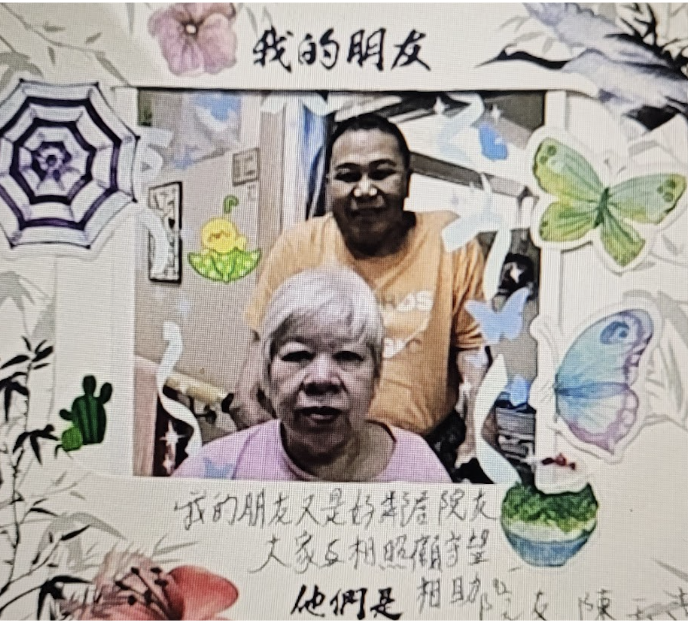 我的朋友
我的朋友又是好鄰居院友
大家互相照顧守望
相助
他們是 院友 陳玉